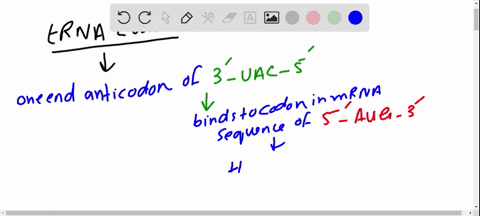 tRNA
one end anticodon of 3´-UAC-5´
binds to codon in mRNA
sequence of 5´-AUG-3´
H